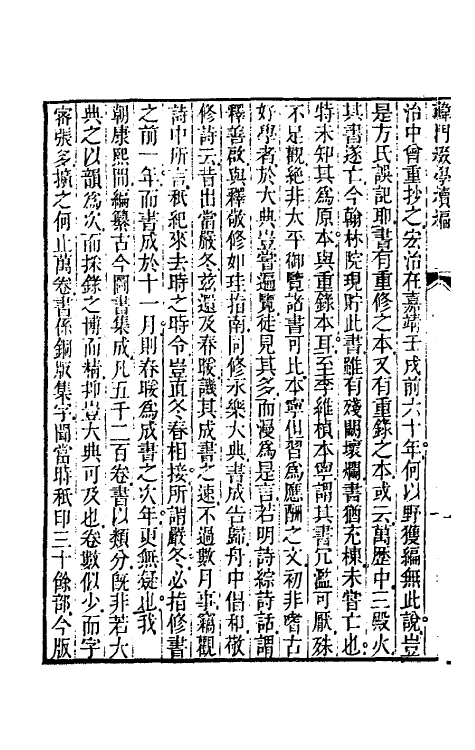 韓門綴學續編
治中曾重抄之宏治在嘉靖壬戌前六十年何以野獲編無此說豈
是方氏誤記耶書有重修之本又有重錄之本或云萬歷中三殿火
其書遂亡今翰林院現貯此書雖有殘闕壞爛書猶充棟未嘗亡也
特未知其爲原本與重錄本耳至李維楨本寧謂其書冗濫可厭殊
不足觀絶非太平御覽諸書可比本寧但習爲應酬之文初非嗜古
好學者於大典豈嘗遍覽徒見其多而漫爲是言若明詩綜詩話謂
釋善啟與釋敬修如珪指南同修永樂大典書成告歸舟中倡和敬
修詩云昔出當嚴冬兹還及春暖譏其成書之速不過數月事籍觀
詩中所言秖紀來去時之時令豈直冬春相接所謂嚴冬必指修書
之前一年而書成於十一月則春暖爲成書之次年更無疑也我
朝康熙間編纂古今圖書集成凡五千二百卷書以類分旣非若大
典之以韻爲次而採錄之博而精抑豈大典可及也卷數似少而字
密張多擴之何止萬卷書係銅版集字聞當時秖印三十餘部今版